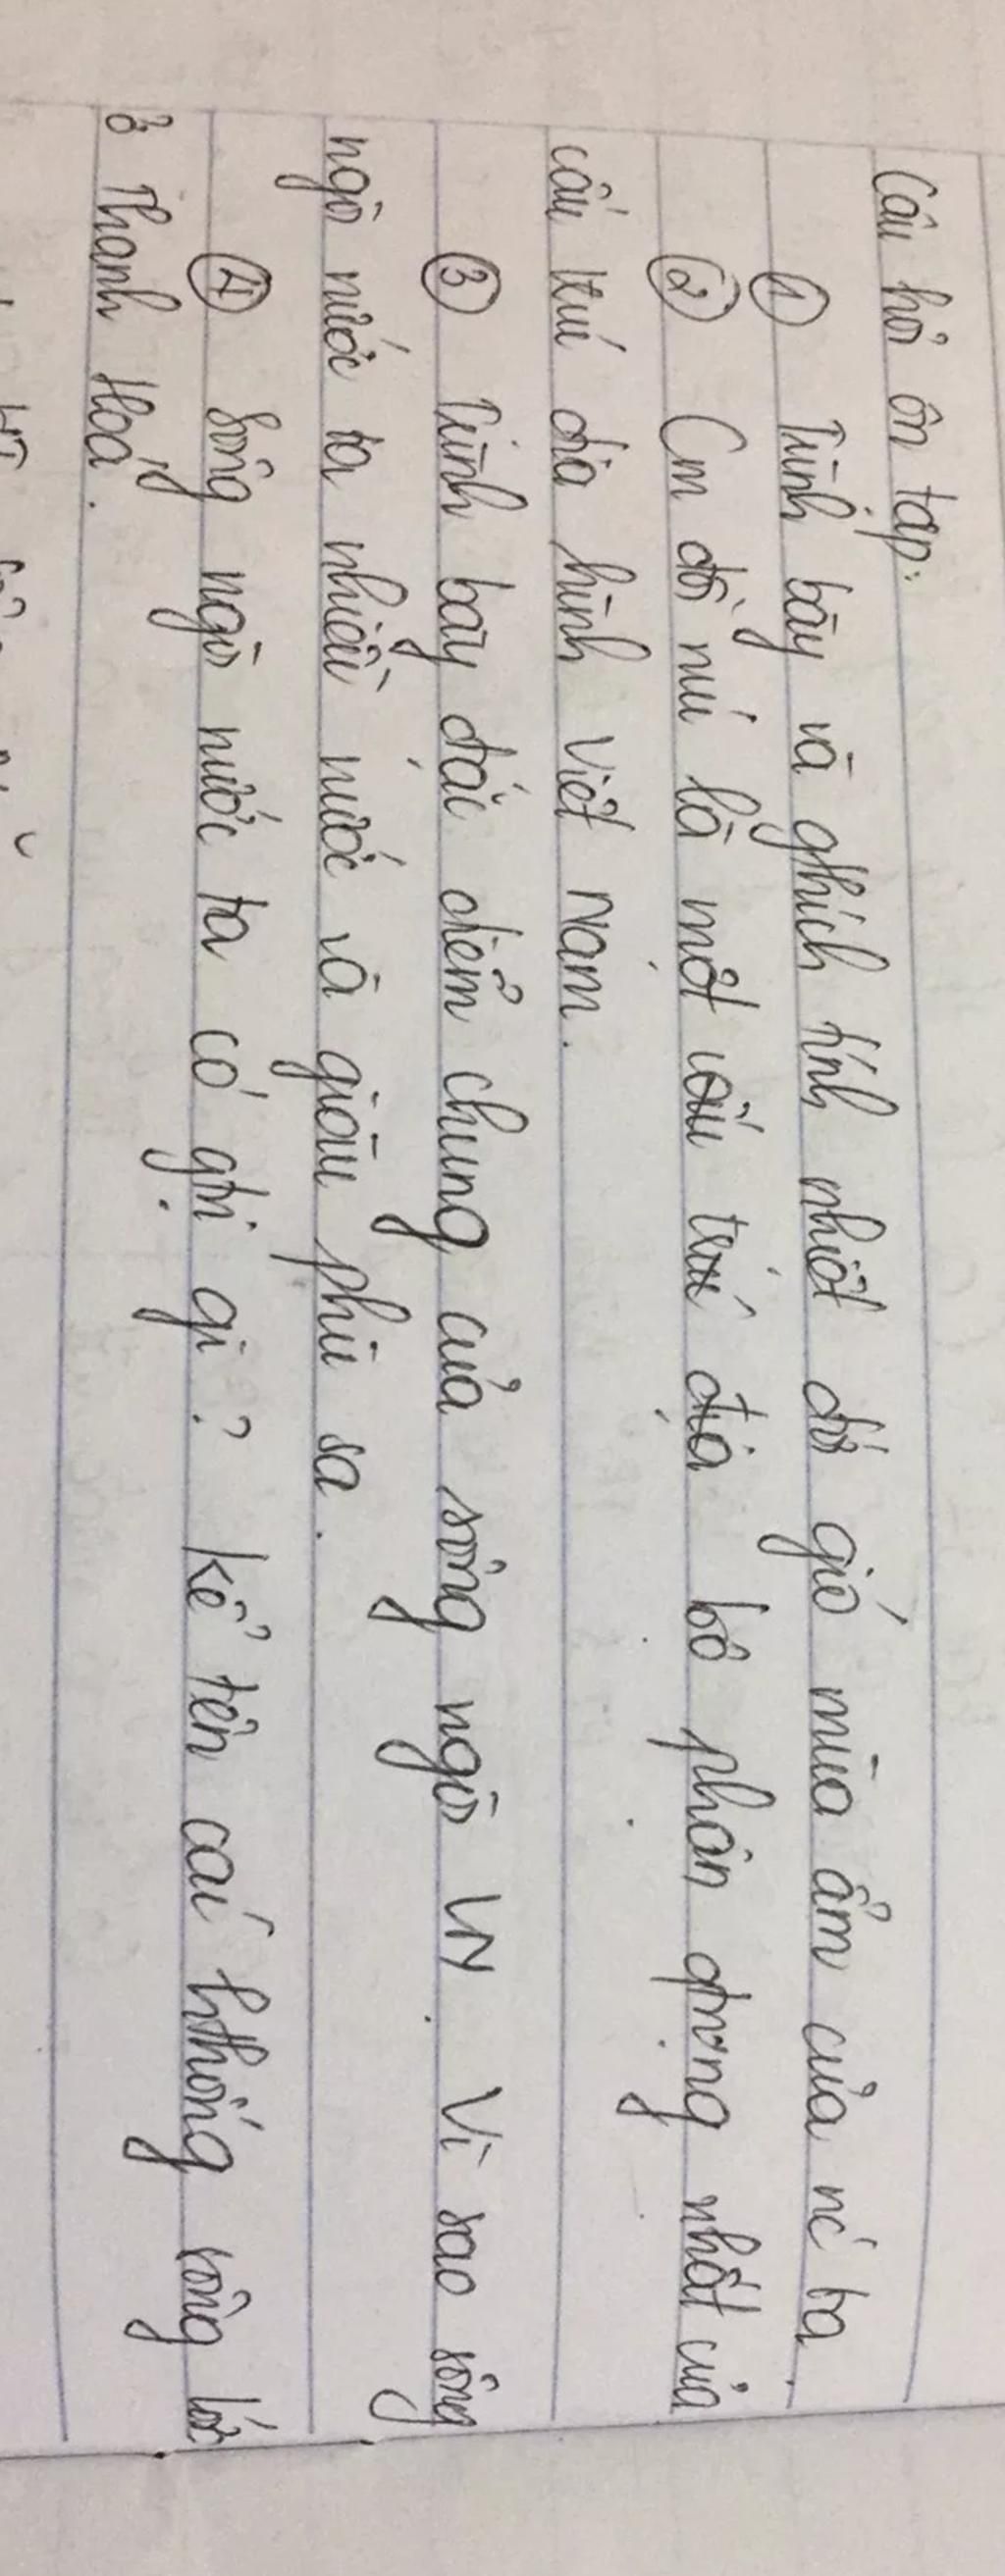 Câu hỏi ôn tập:
① Trình bày và gthích tính nhiệt đới gió mùa ẩm của nc ta.
② Cm đồi núi là một cấu trúc địa bộ phận qtrọng nhất của
cấu trúc địa hình Việt Nam.
③ Trình bày đặc điểm chung của sông ngòi VN. Vì sao sông
ngòi nước ta nhiều nước và giàu phù sa.
④ Sông ngòi nước ta có gtrị gì? Kể tên các hthống sông lớn
ở Thanh Hoá.